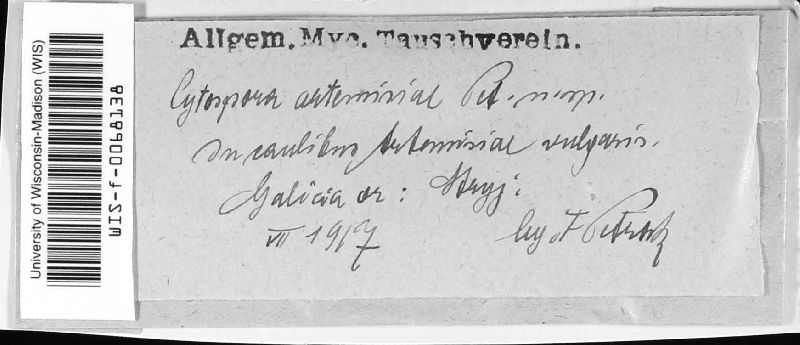 University of Wisconsin-Madison (WIS)
WIS-f-0068138
Allgem. Myc. Tauschverein.
Cytospora artemisiae Pet. n. sp.
In caulibus Artemisiae vulgaris.
Galicia or: Stryj.
VII 1917 leg. F. Petrak